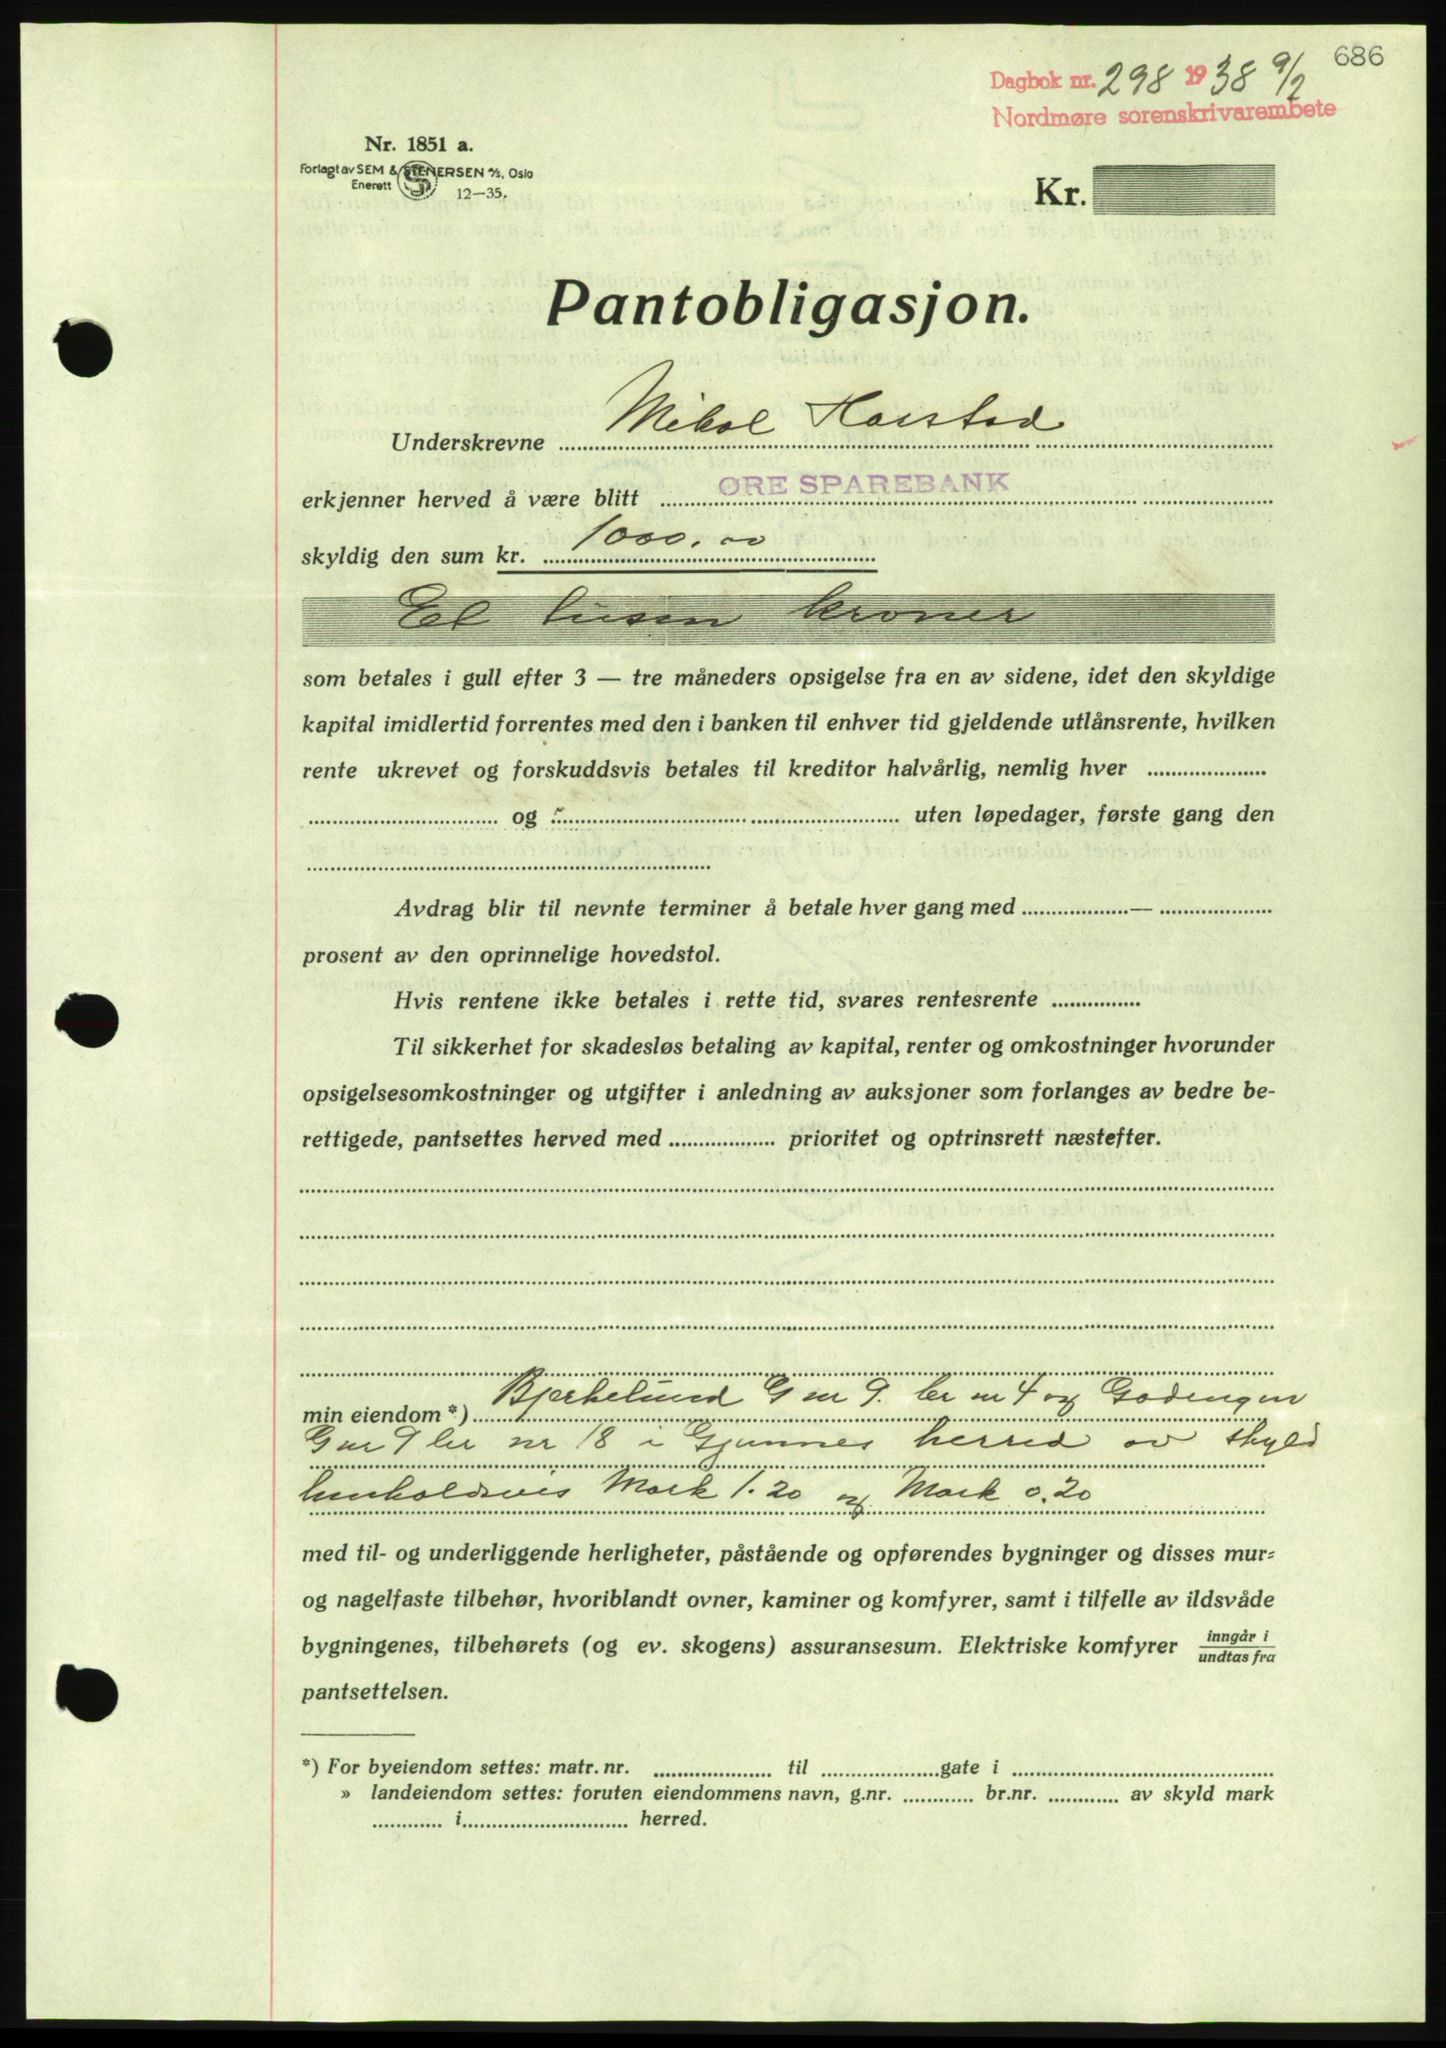 686
Dagbok nr. 298 1938 9/2
Nordmøre sorenskrivarembete
Nr. 1851 a.
Forlagt av SEM & STENERSEN A/S, Oslo
Enerett
12—35.
Kr.
Pantobligasjon.
Underskrevne Mikal Harstad
erkjenner herved å være blitt ØRE SPAREBANK
skyldig den sum kr. 1000.00
Et tusen kroner
som betales i gull efter 3 — tre måneders opsigelse fra en av sidene, idet den skyldige
kapital imidlertid forrentes med den i banken til enhver tid gjeldende utlånsrente, hvilken
rente ukrevet og forskuddsvis betales til kreditor halvårlig, nemlig hver ....................
.............................. og .............................. uten løpedager, første gang den
..............................
Avdrag blir til nevnte terminer å betale hver gang med ..................—...................
prosent av den oprinnelige hovedstol.
Hvis rentene ikke betales i rette tid, svares rentesrente ...............
Til sikkerhet for skadesløs betaling av kapital, renter og omkostninger hvorunder
opsigelsesomkostninger og utgifter i anledning av auksjoner som forlanges av bedre be-
rettigede, pantsettes herved med .................. prioritet og optrinsrett næstefter.
min eiendom *) Bjerkelund G nr 9. br nr 4 og
Gnr 9 br nr 18 i Gjemnes herred av skyld
henholdsvis Mark 1.20 og Mark 0.20
med til- og underliggende herligheter, påstående og opførendes bygninger og disses mur-
og nagelfaste tilbehør, hvoriblandt ovner, kaminer og komfyrer, samt i tilfelle av ildsvåde
bygningenes, tilbehørets (og ev. skogens) assuransesum. Elektriske komfyrer inngår i / undtas fra
pantsettelsen.
*) For byeiendom settes: matr. nr. .................... til ....................gate i ..............................
» landeiendom settes: foruten eiendommens navn, g.nr. ............ br.nr. ............ av skyld mark
............ i.............................. herred.